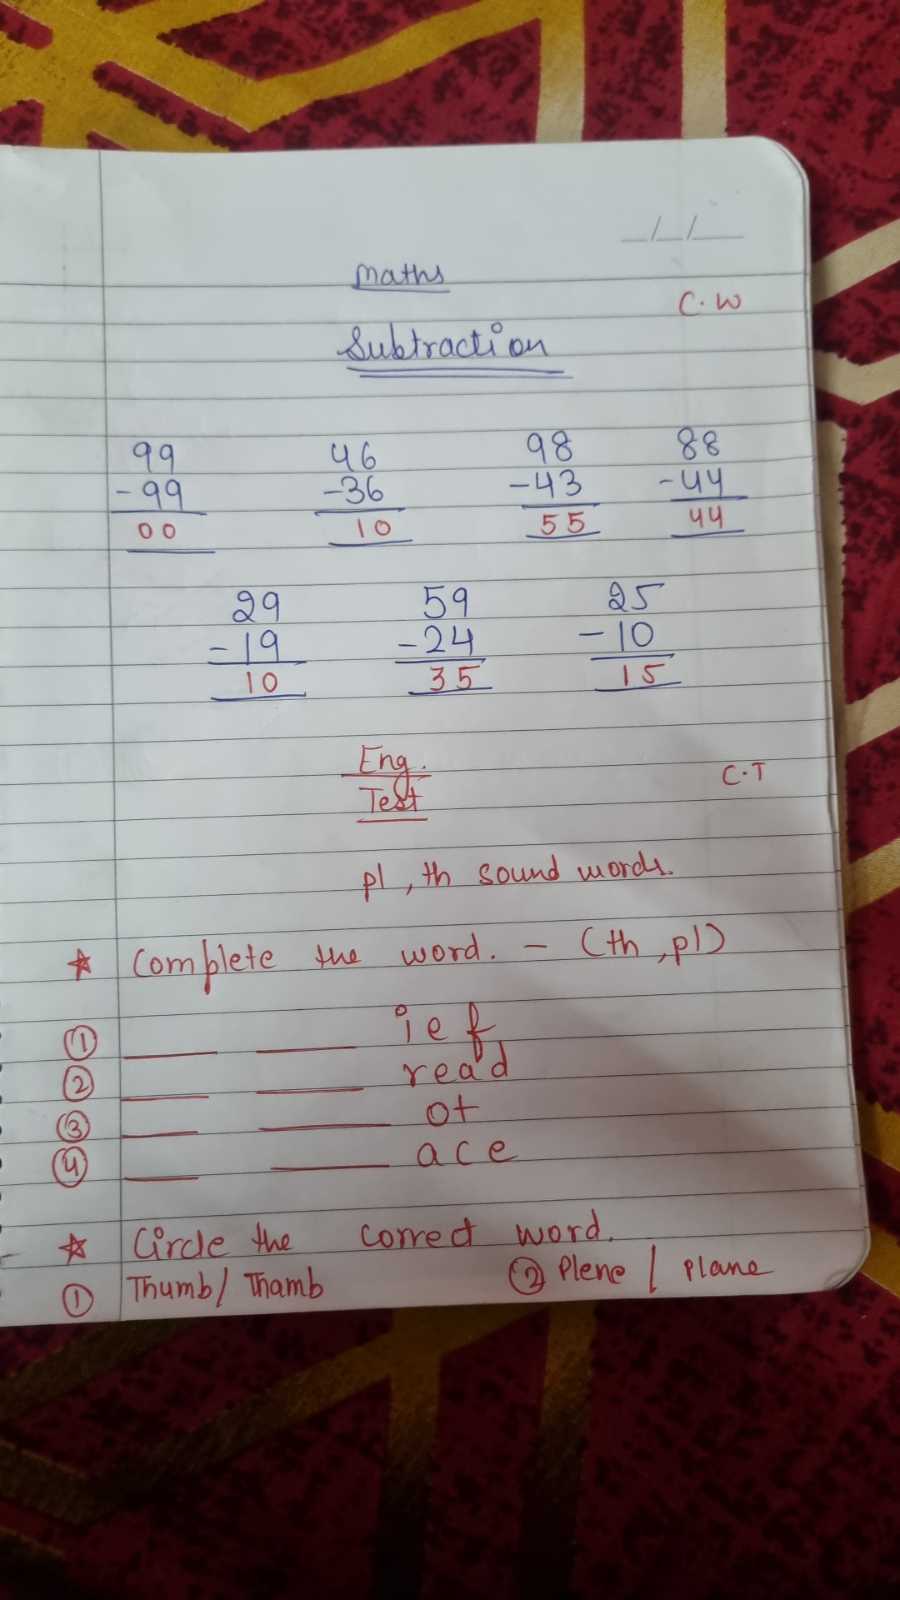 __/__/____
Maths
C.W
Subtraction
99 46 98 88
-99 -36 -43 -44
00 10 55 44
29 59 25
-19 -24 -10
10 35 15
Eng.
Test
C.T
pl, th sound words.
☆ Complete the word. - (th, pl)
① __ __ ief
② __ __ read
③ __ __ ot
④ __ __ ace
☆ Circle the correct word.
① Thumb/ Thamb ② Plene / plane